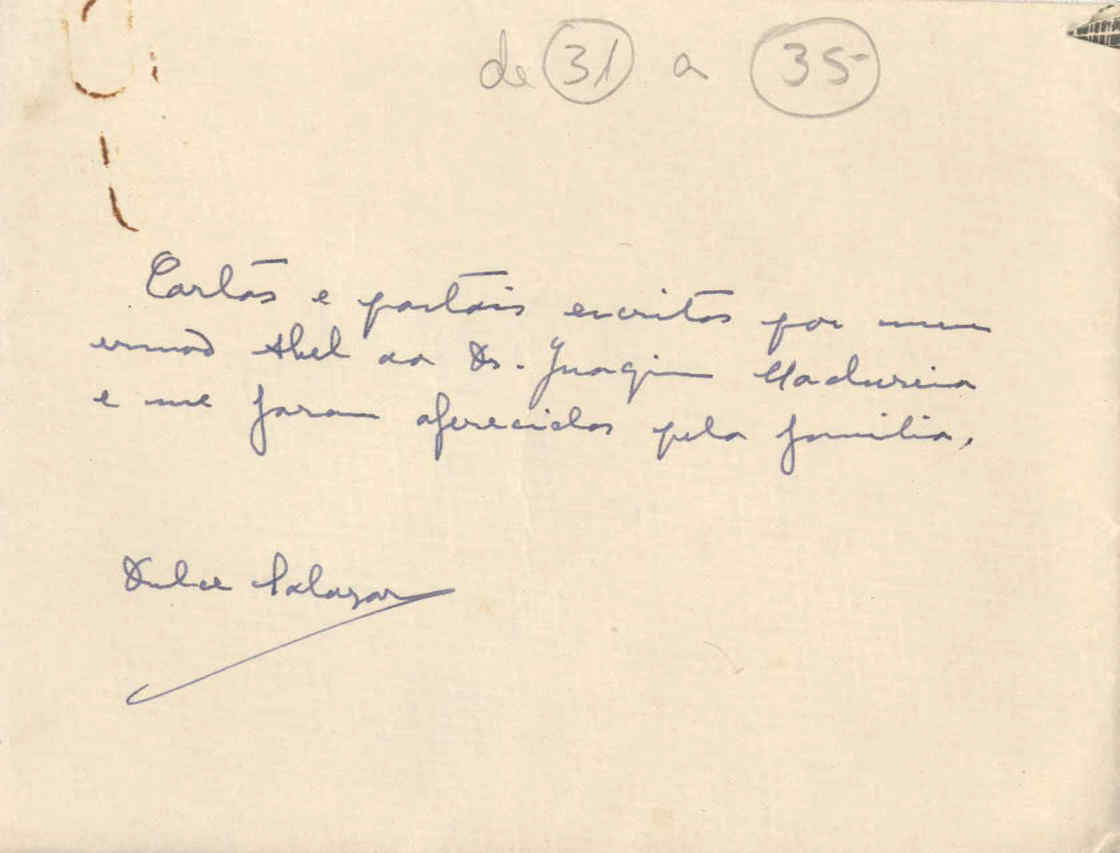 de 31 a 35
Cartas e postais escritos por meu
irmão Abel ao Dr. Joaquim Madureira
e me foram oferecidos pela familia.
Dulce Salazar